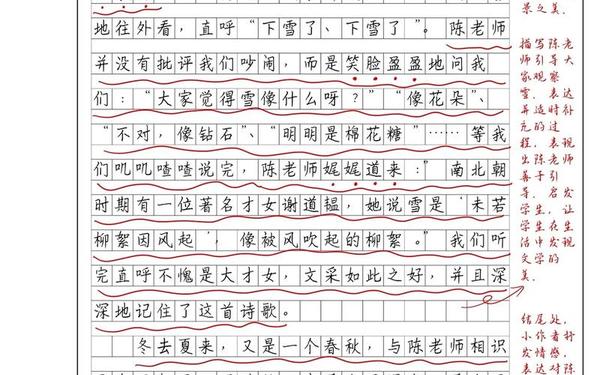 地往外看，直呼“下雪了、下雪了”。陈老师
并没有批评我们吵闹，而是笑脸盈盈地问我
们：“大家觉得雪像什么呀？”“像花朵”、
“不对，像钻石”、“明明是棉花糖”……等我
们叽叽喳喳说完，陈老师娓娓道来：”南北朝
时期有一位著名才女谢道韫，她说雪是‘未若
柳絮因风起’，像被风吹起的柳絮。”我们听
完直呼不愧是大才女，文采如此之好，并且深
深地记住了这首诗歌。
冬去夏来，又是一个春秋，与陈老师相识
景之美。
描写陈老
师引导大
家观察
雪、表达
并适时补
充的过
程，表现
出陈老师
善于引
导、启发
学生，让
学生在生
活中发现
文学的
美。
结尾处，
小作者抒
发情感，
表达对陈